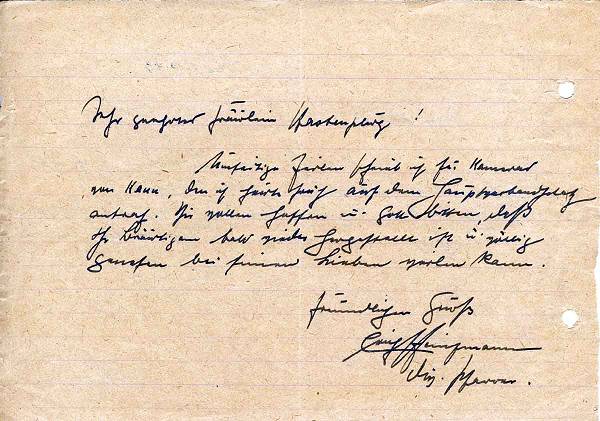 Sehr geehrtes Fräulein Hastenpflug!
Umseitige Zeilen schrieb ich für Kamerad
von Hann, den ich heute früh auf dem Hauptverbandsplatz
antraf. Wir wollen hoffen u. Gott bitten, daß
Ihr Bräutigam bald wieder hergestellt ist u. völlig
genesen bei seinen Lieben weilen kann.
Freundlichen Gruß
Div. Pfarrer.